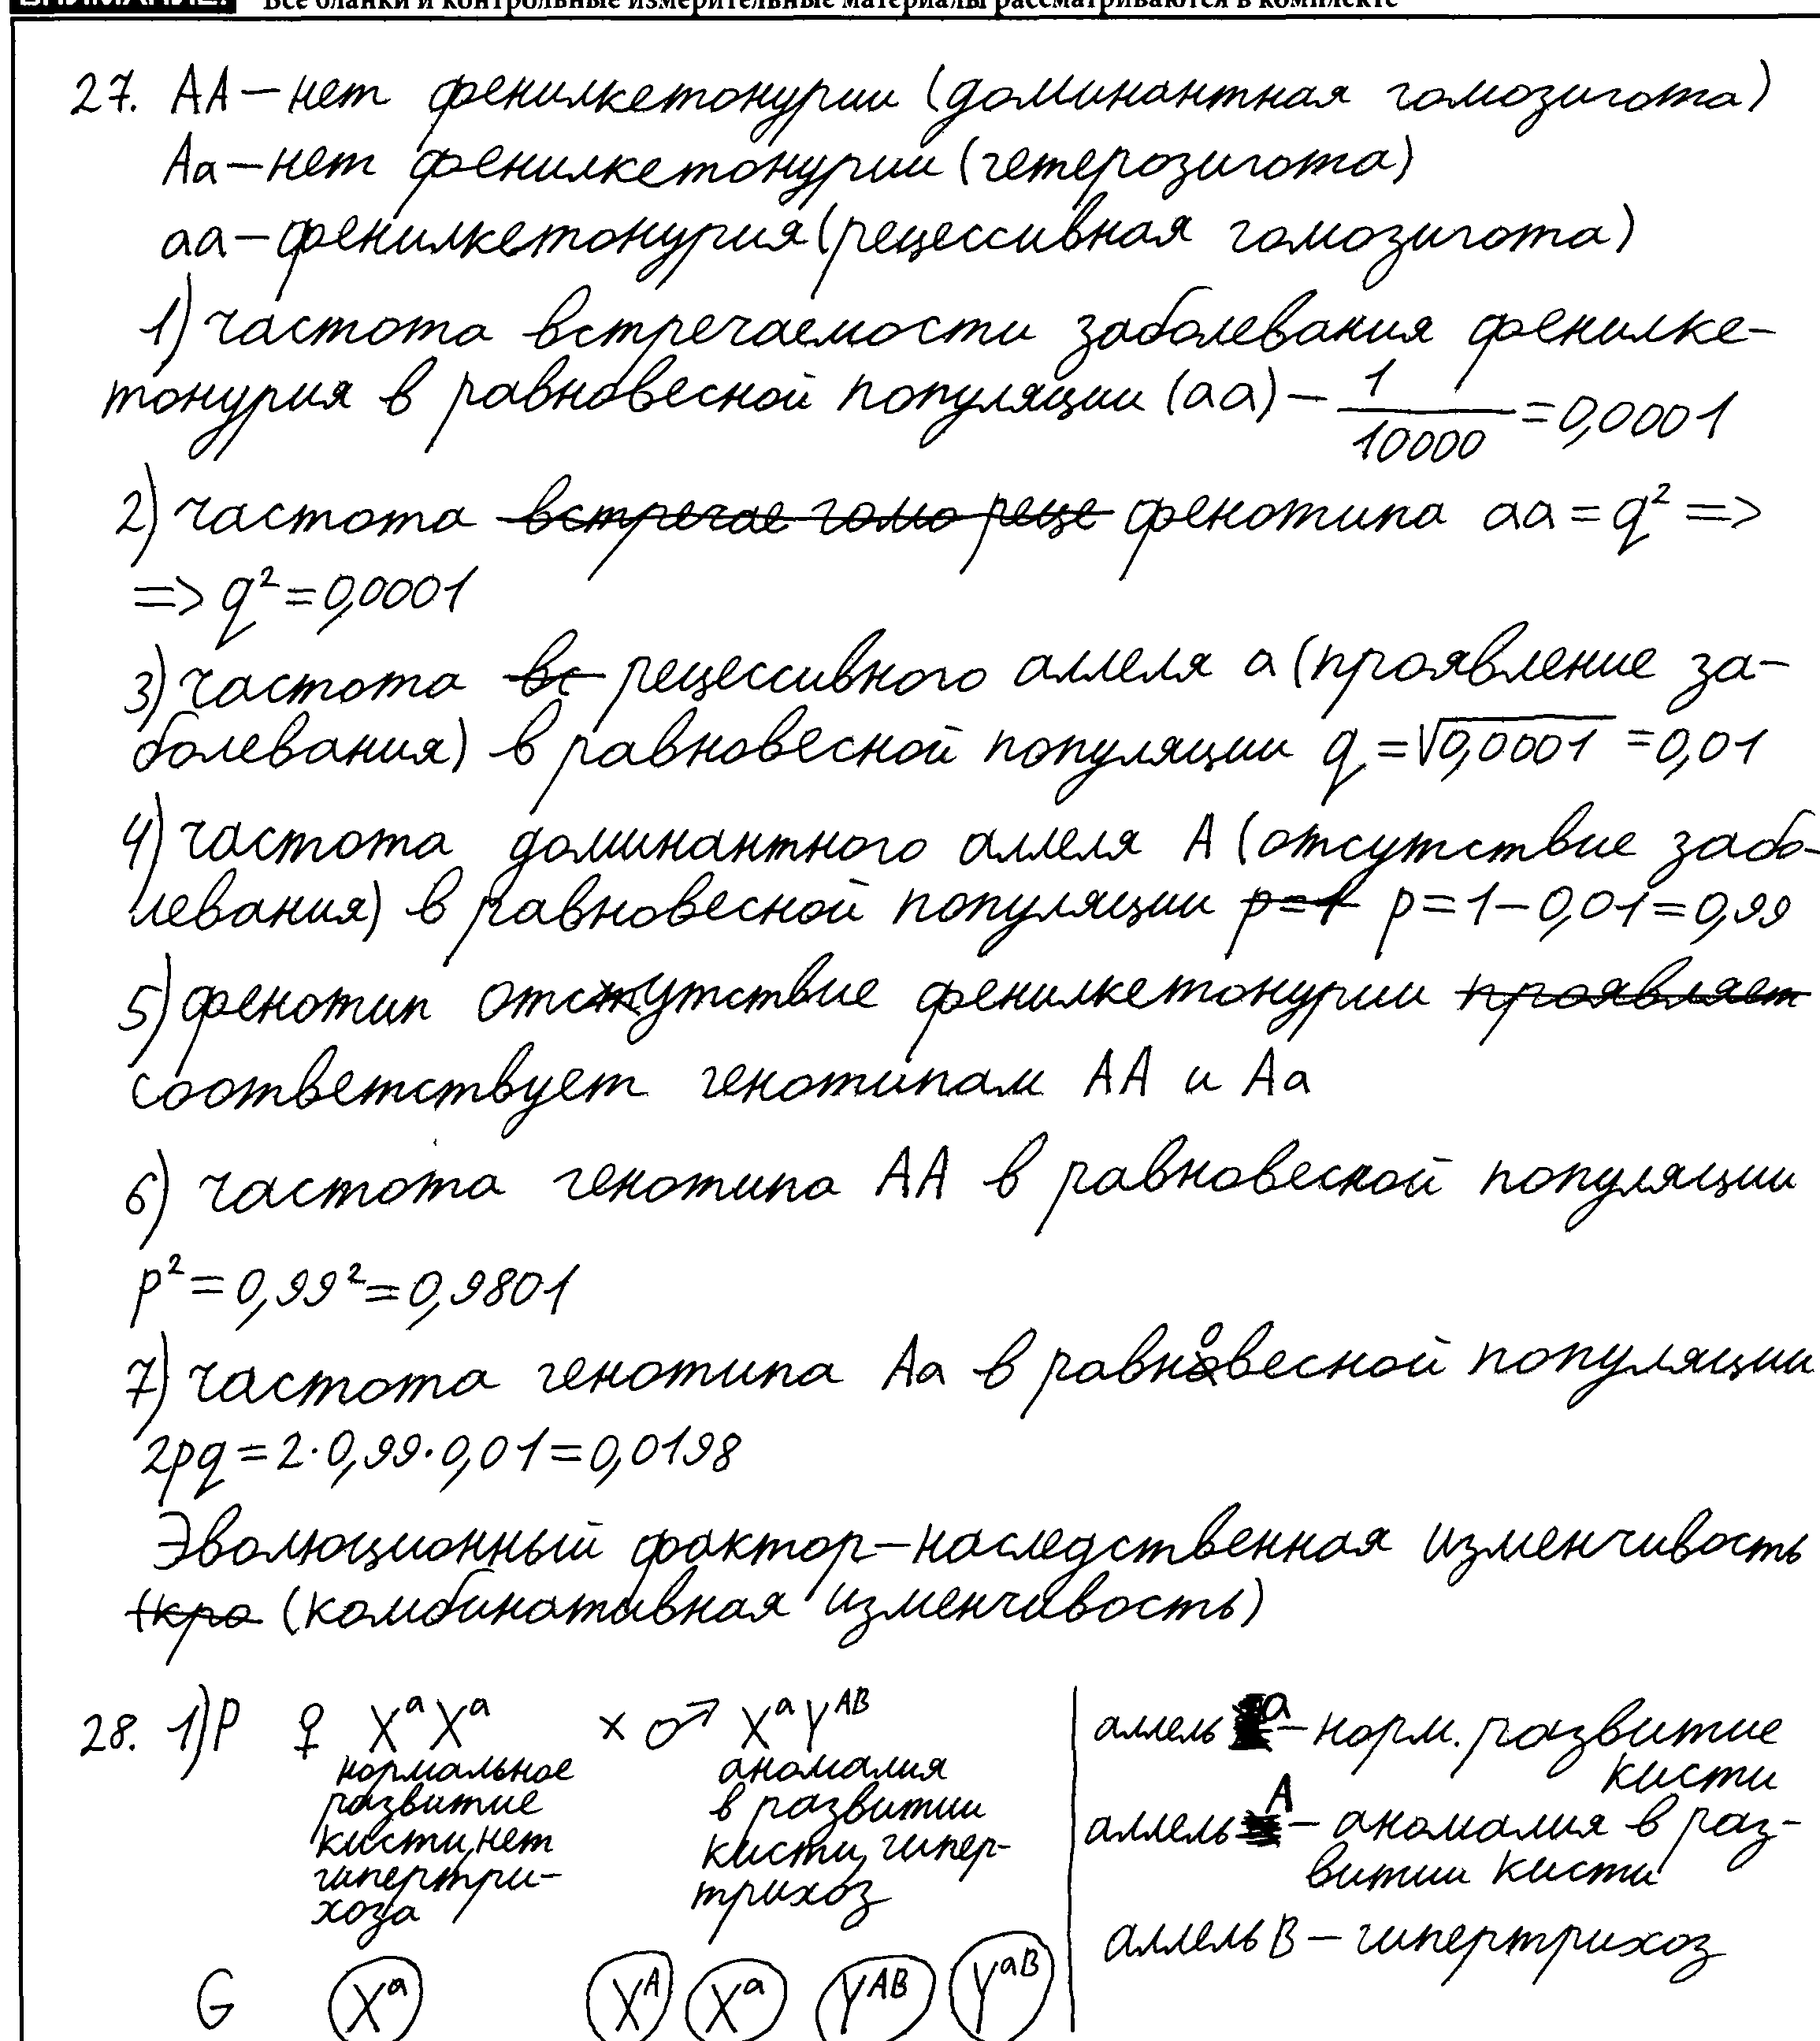 Все бланки и контрольные измерительные материалы рассматриваются в комплекте
27. AA – нет фенилкетонурии (доминантная гомозигота)
Aa – нет фенилкетонурии (гетерозигота)
aa – фенилкетонурия (рецессивная гомозигота)
1) частота встречаемости заболевания фенилке-
тонурия в равновесной популяции (aa) – 1/10000 = 0,0001
2) частота встречае гомо реце фенотипа aa = q² =>
=> q² = 0,0001
3) частота вс рецессивного аллеля a (проявление за-
болевания) в равновесной популяции q = √0,0001 = 0,01
4) частота доминантного аллеля A (отсутствие забо-
левания) в равновесной популяции p=1 p = 1 – 0,01 = 0,99
5) фенотип отсутствие фенилкетонурии проявляет
соответствует генотипам AA и Aa
6) частота генотипа AA в равновесной популяции
p² = 0,99² = 0,9801
7) частота генотипа Aa в равновесной популяции
2pq = 2·0,99·0,01 = 0,0198
Эволюционный фактор – наследственная изменчивость
(кро (комбинативная изменчивость)
28. 1) P ♀ XᵃXᵃ × ♂ XᵃYᴬᴮ
нормальное развитие кисти, нет гипертри-
хоза
аномалия в развитии кисти, гипер-
трихоз
G Xᵃ Xᴬ Xᵃ Yᴬᴮ Yᵃᴮ
аллель a – норм. развитие
кисти
аллель A – аномалия в раз-
витии кисти
аллель B – гипертрихоз